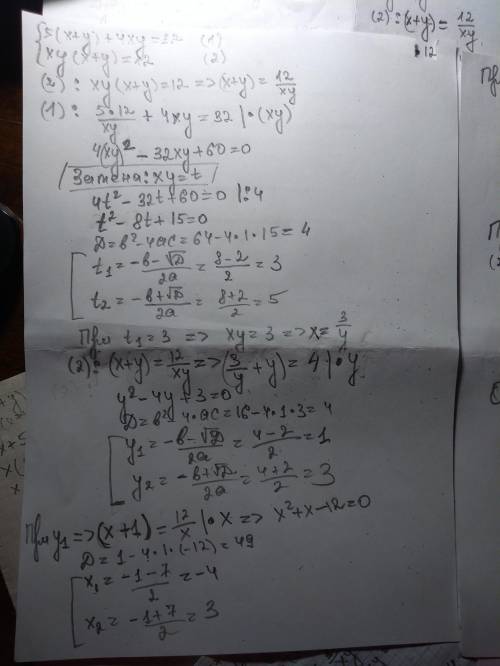 (2): (x+y) = 12/xy
12
{ 5(x+y) + 4xy = 32 (1)
{ xy(x+y) = 12 (2)
(2): xy(x+y) = 12 => (x+y) = 12/xy
(1): 5·12/xy + 4xy = 32 | ·(xy)
4(xy)² - 32xy + 60 = 0
/Замена: xy = t/
4t² - 32t + 60 = 0 |:4
t² - 8t + 15 = 0
D = b² - 4ac = 64 - 4·1·15 = 4
t₁ = (-b-√D)/2a = (8-2)/2 = 3
t₂ = (-b+√D)/2a = (8+2)/2 = 5
При t₁ = 3 => xy = 3 => x = 3/y
(2): (x+y) = 12/xy => (3/y + y) = 4 | · y
y² - 4y + 3 = 0
D = b² - 4·ac = 16 - 4·1·3 = 4
y₁ = (-b-√D)/2a = (4-2)/2 = 1
y₂ = (-b+√D)/2a = (4+2)/2 = 3
При y₁ => (x+1) = 12/x | · x => x² + x - 12 = 0
D = 1 - 4·1·(-12) = 49
x₁ = (-1-7)/2 = -4
x₂ = (-1+7)/2 = 3